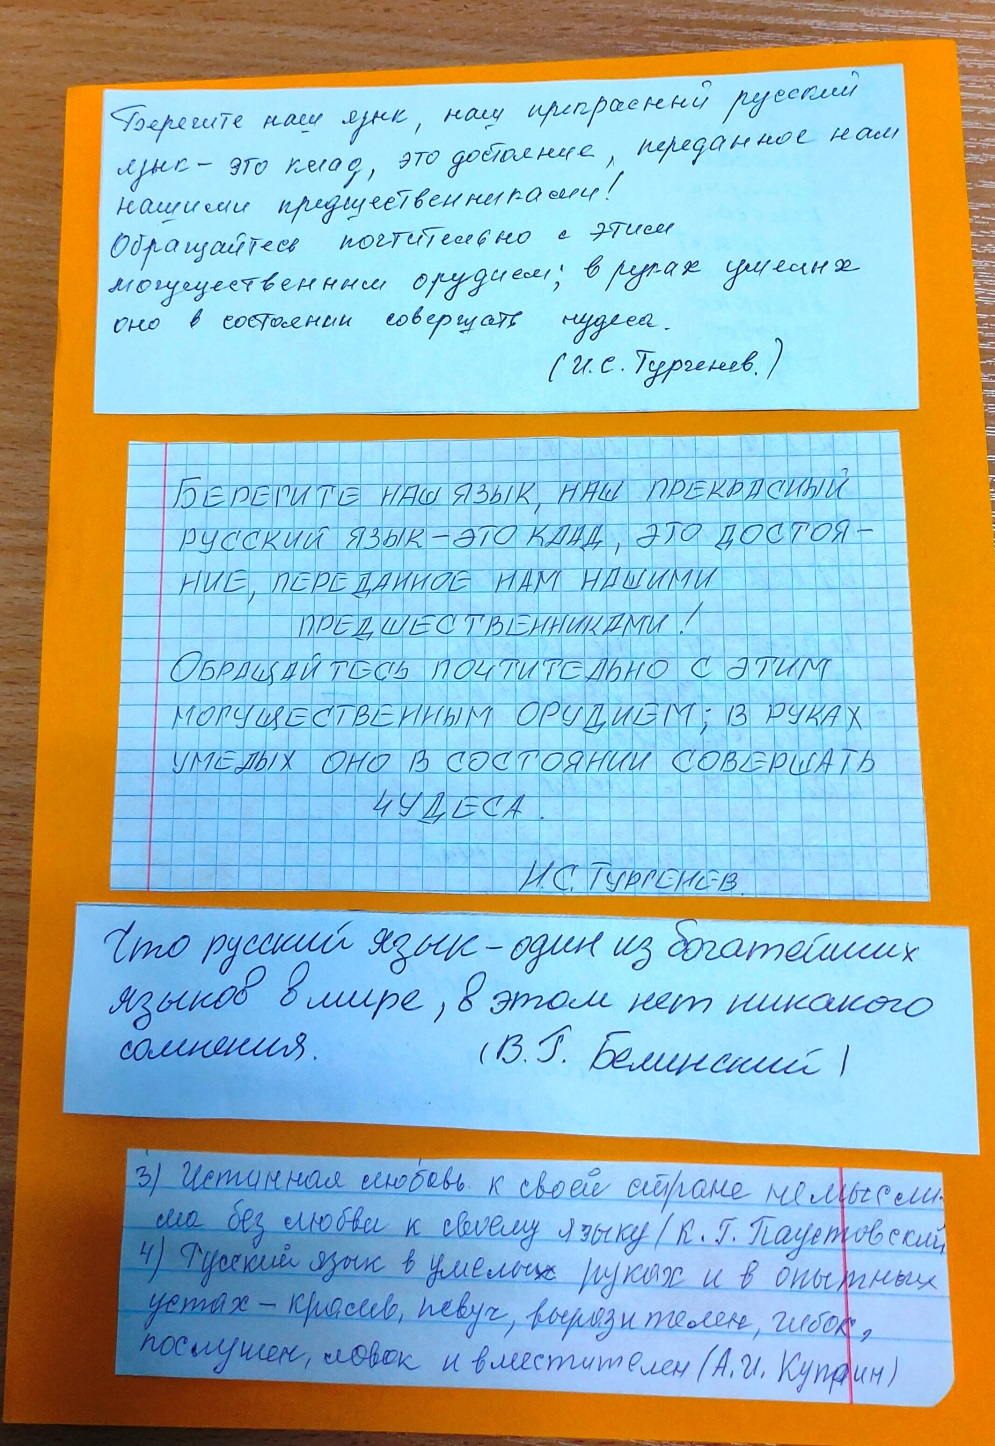 Берегите наш язык, наш прекрасный русский
язык – это клад, это достояние, переданное нам
нашими предшественниками!
Обращайтесь почтительно с этим
могущественным орудием; в руках умелых
оно в состоянии совершать чудеса.
(И.С. Тургенев.)
БЕРЕГИТЕ НАШ ЯЗЫК, НАШ ПРЕКРАСНЫЙ
РУССКИЙ ЯЗЫК – ЭТО КЛАД, ЭТО ДОСТОЯ-
НИЕ, ПЕРЕДАННОЕ НАМ НАШИМИ
ПРЕДШЕСТВЕННИКАМИ!
ОБРАЩАЙТЕСЬ ПОЧТИТЕЛЬНО С ЭТИМ
МОГУЩЕСТВЕННЫМ ОРУДИЕМ; В РУКАХ
УМЕЛЫХ ОНО В СОСТОЯНИИ СОВЕРШАТЬ
ЧУДЕСА.
И.С. ТУРГЕНЕВ.
Что русский язык – один из богатейших
языков в мире, в этом нет никакого
сомнения. (В.Г. Белинский)
3) Истинная любовь к своей стране немысли-
ма без любви к своему языку (К.Г. Паустовский
4) Русский язык в умелых руках и в опытных
устах – красив, певуч, выразителен, гибок,
послушен, ловок и вместителен (А.И. Куприн)